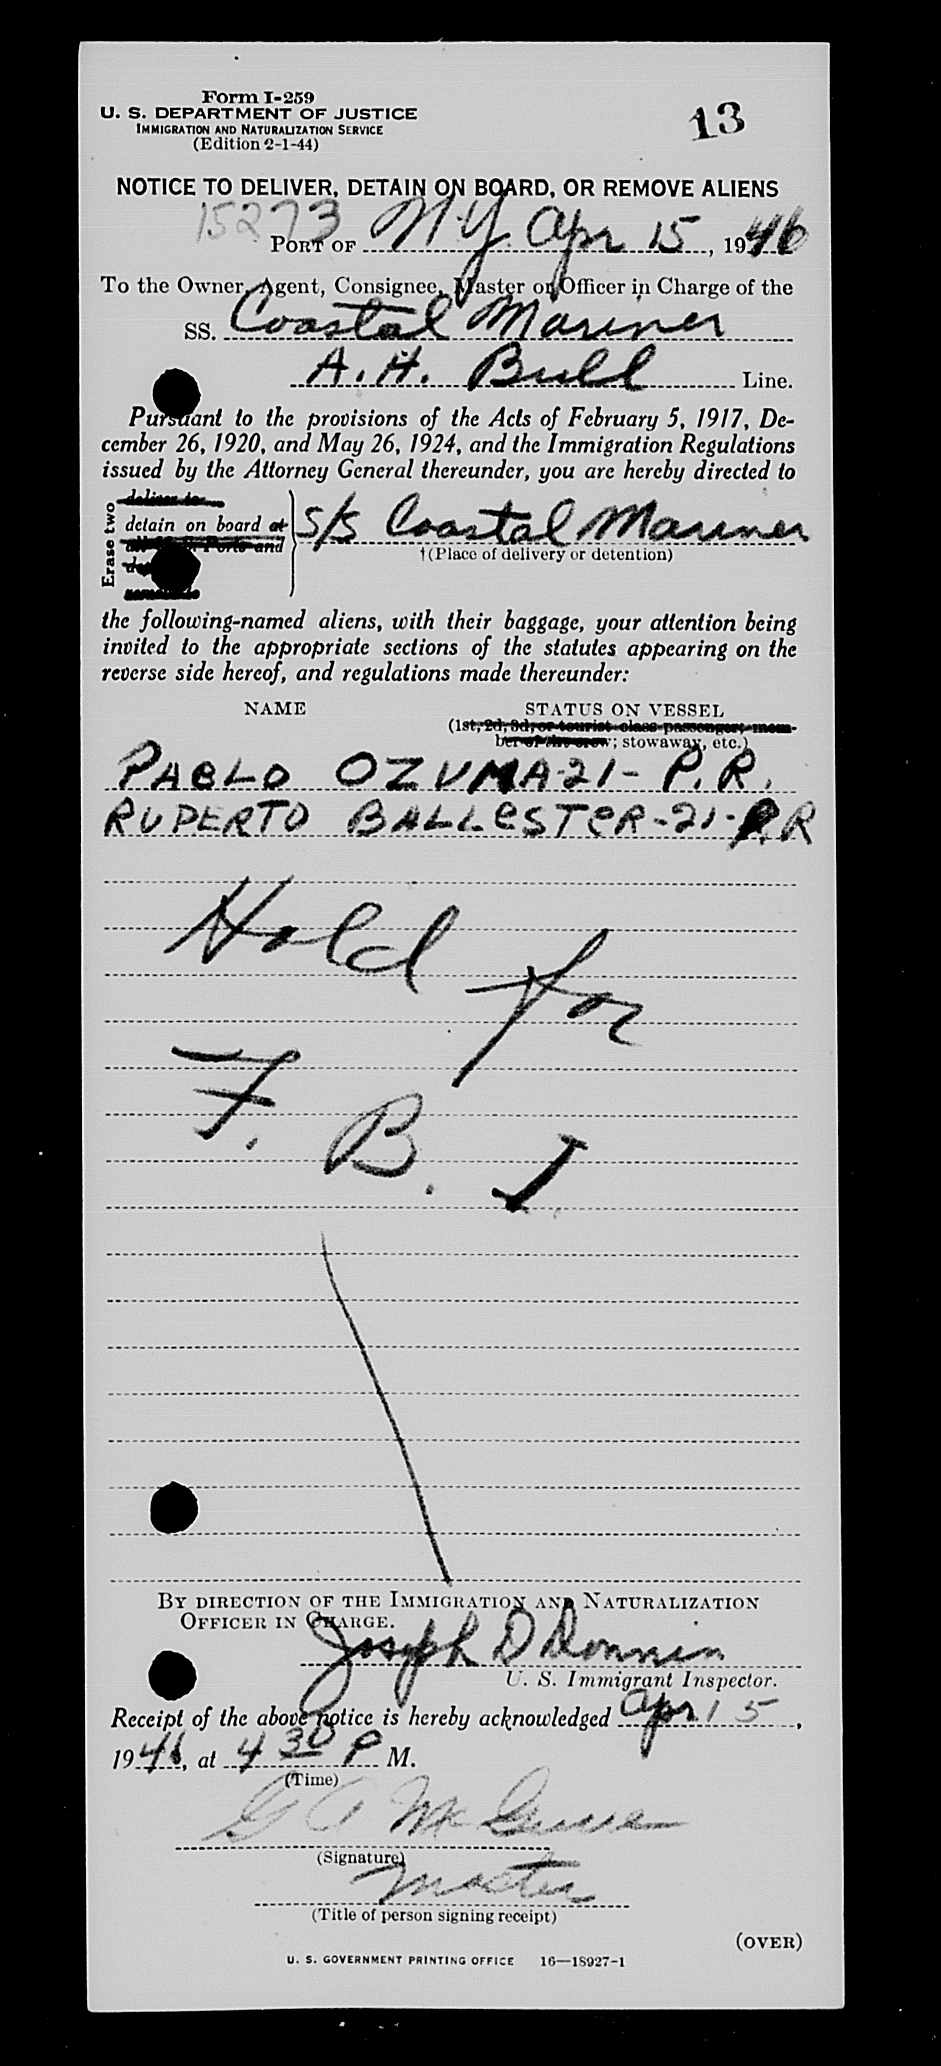 Form I-259
U. S. DEPARTMENT OF JUSTICE
IMMIGRATION AND NATURALIZATION SERVICE
(Edition 2-1-44)
13
NOTICE TO DELIVER, DETAIN ON BOARD, OR REMOVE ALIENS
15273
PORT OF N.Y. Apr 15, 1946
To the Owner, Agent, Consignee, Master or Officer in Charge of the
SS. Coastal Mariner
A. H. Bull Line.
Pursuant to the provisions of the Acts of February 5, 1917, De-
cember 26, 1920, and May 26, 1924, and the Immigration Regulations
issued by the Attorney General thereunder, you are hereby directed to
Erase two
deliver to
detain on board at
S/S Coastal Mariner
†(Place of delivery or detention)
the following-named aliens, with their baggage, your attention being
invited to the appropriate sections of the statutes appearing on the
reverse side hereof, and regulations made thereunder:
NAME STATUS ON VESSEL
(1st, 2d, 3d, or tourist class passenger, mem-
ber of the crew; stowaway, etc.)
PABLO OZUMA-21- P.R.
RUPERTO BALLESTER-21-P.R
Hold for
F. B. I.
BY DIRECTION OF THE IMMIGRATION AND NATURALIZATION
OFFICER IN CHARGE.
Joseph D Donnin
U. S. Immigrant Inspector.
Receipt of the above notice is hereby acknowledged Apr 15,
1946, at 4 30 P M.
(Time)
G A McGuire
(Signature)
Master
(Title of person signing receipt)
(OVER)
U. S. GOVERNMENT PRINTING OFFICE 16—18927-1